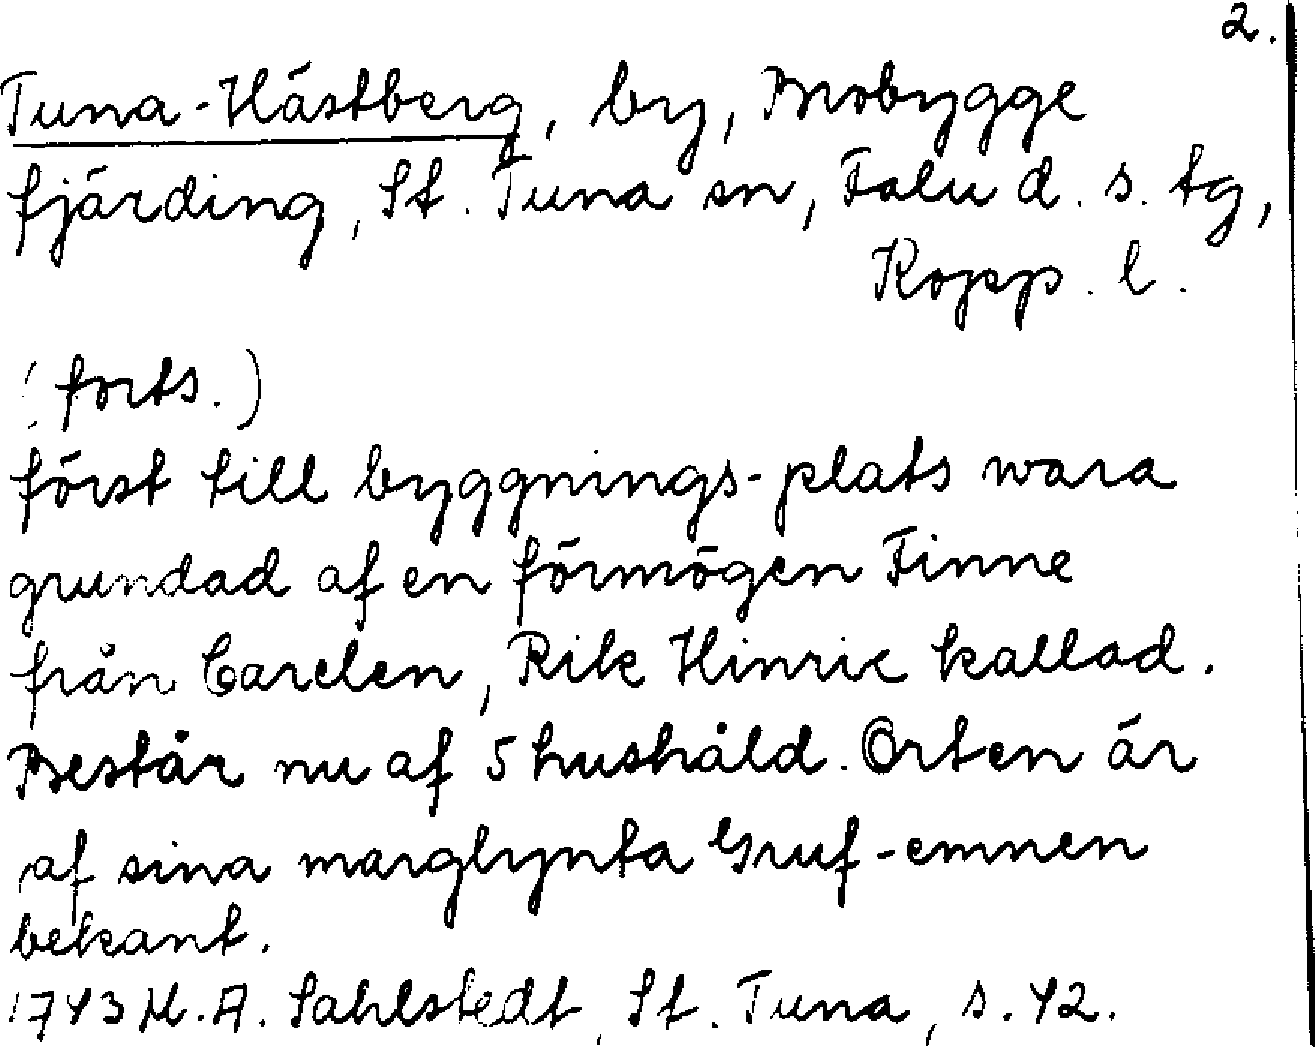 2.
Tuna-Hästberg, by, Brobygge
fjärding, St. Tuna sn, Falu d. s. tg,
Kopp. l.
(forts.)
först till byggnings-plats wara
grundad af en förmögen Finne
från Carelen, Rik Hinric kallad.
Består nu af 5 hushåld. Orten är
af sina marglynta Gruf-emnen
bekant.
1743 M. A. Sahlstedt, St. Tuna, s. 42.